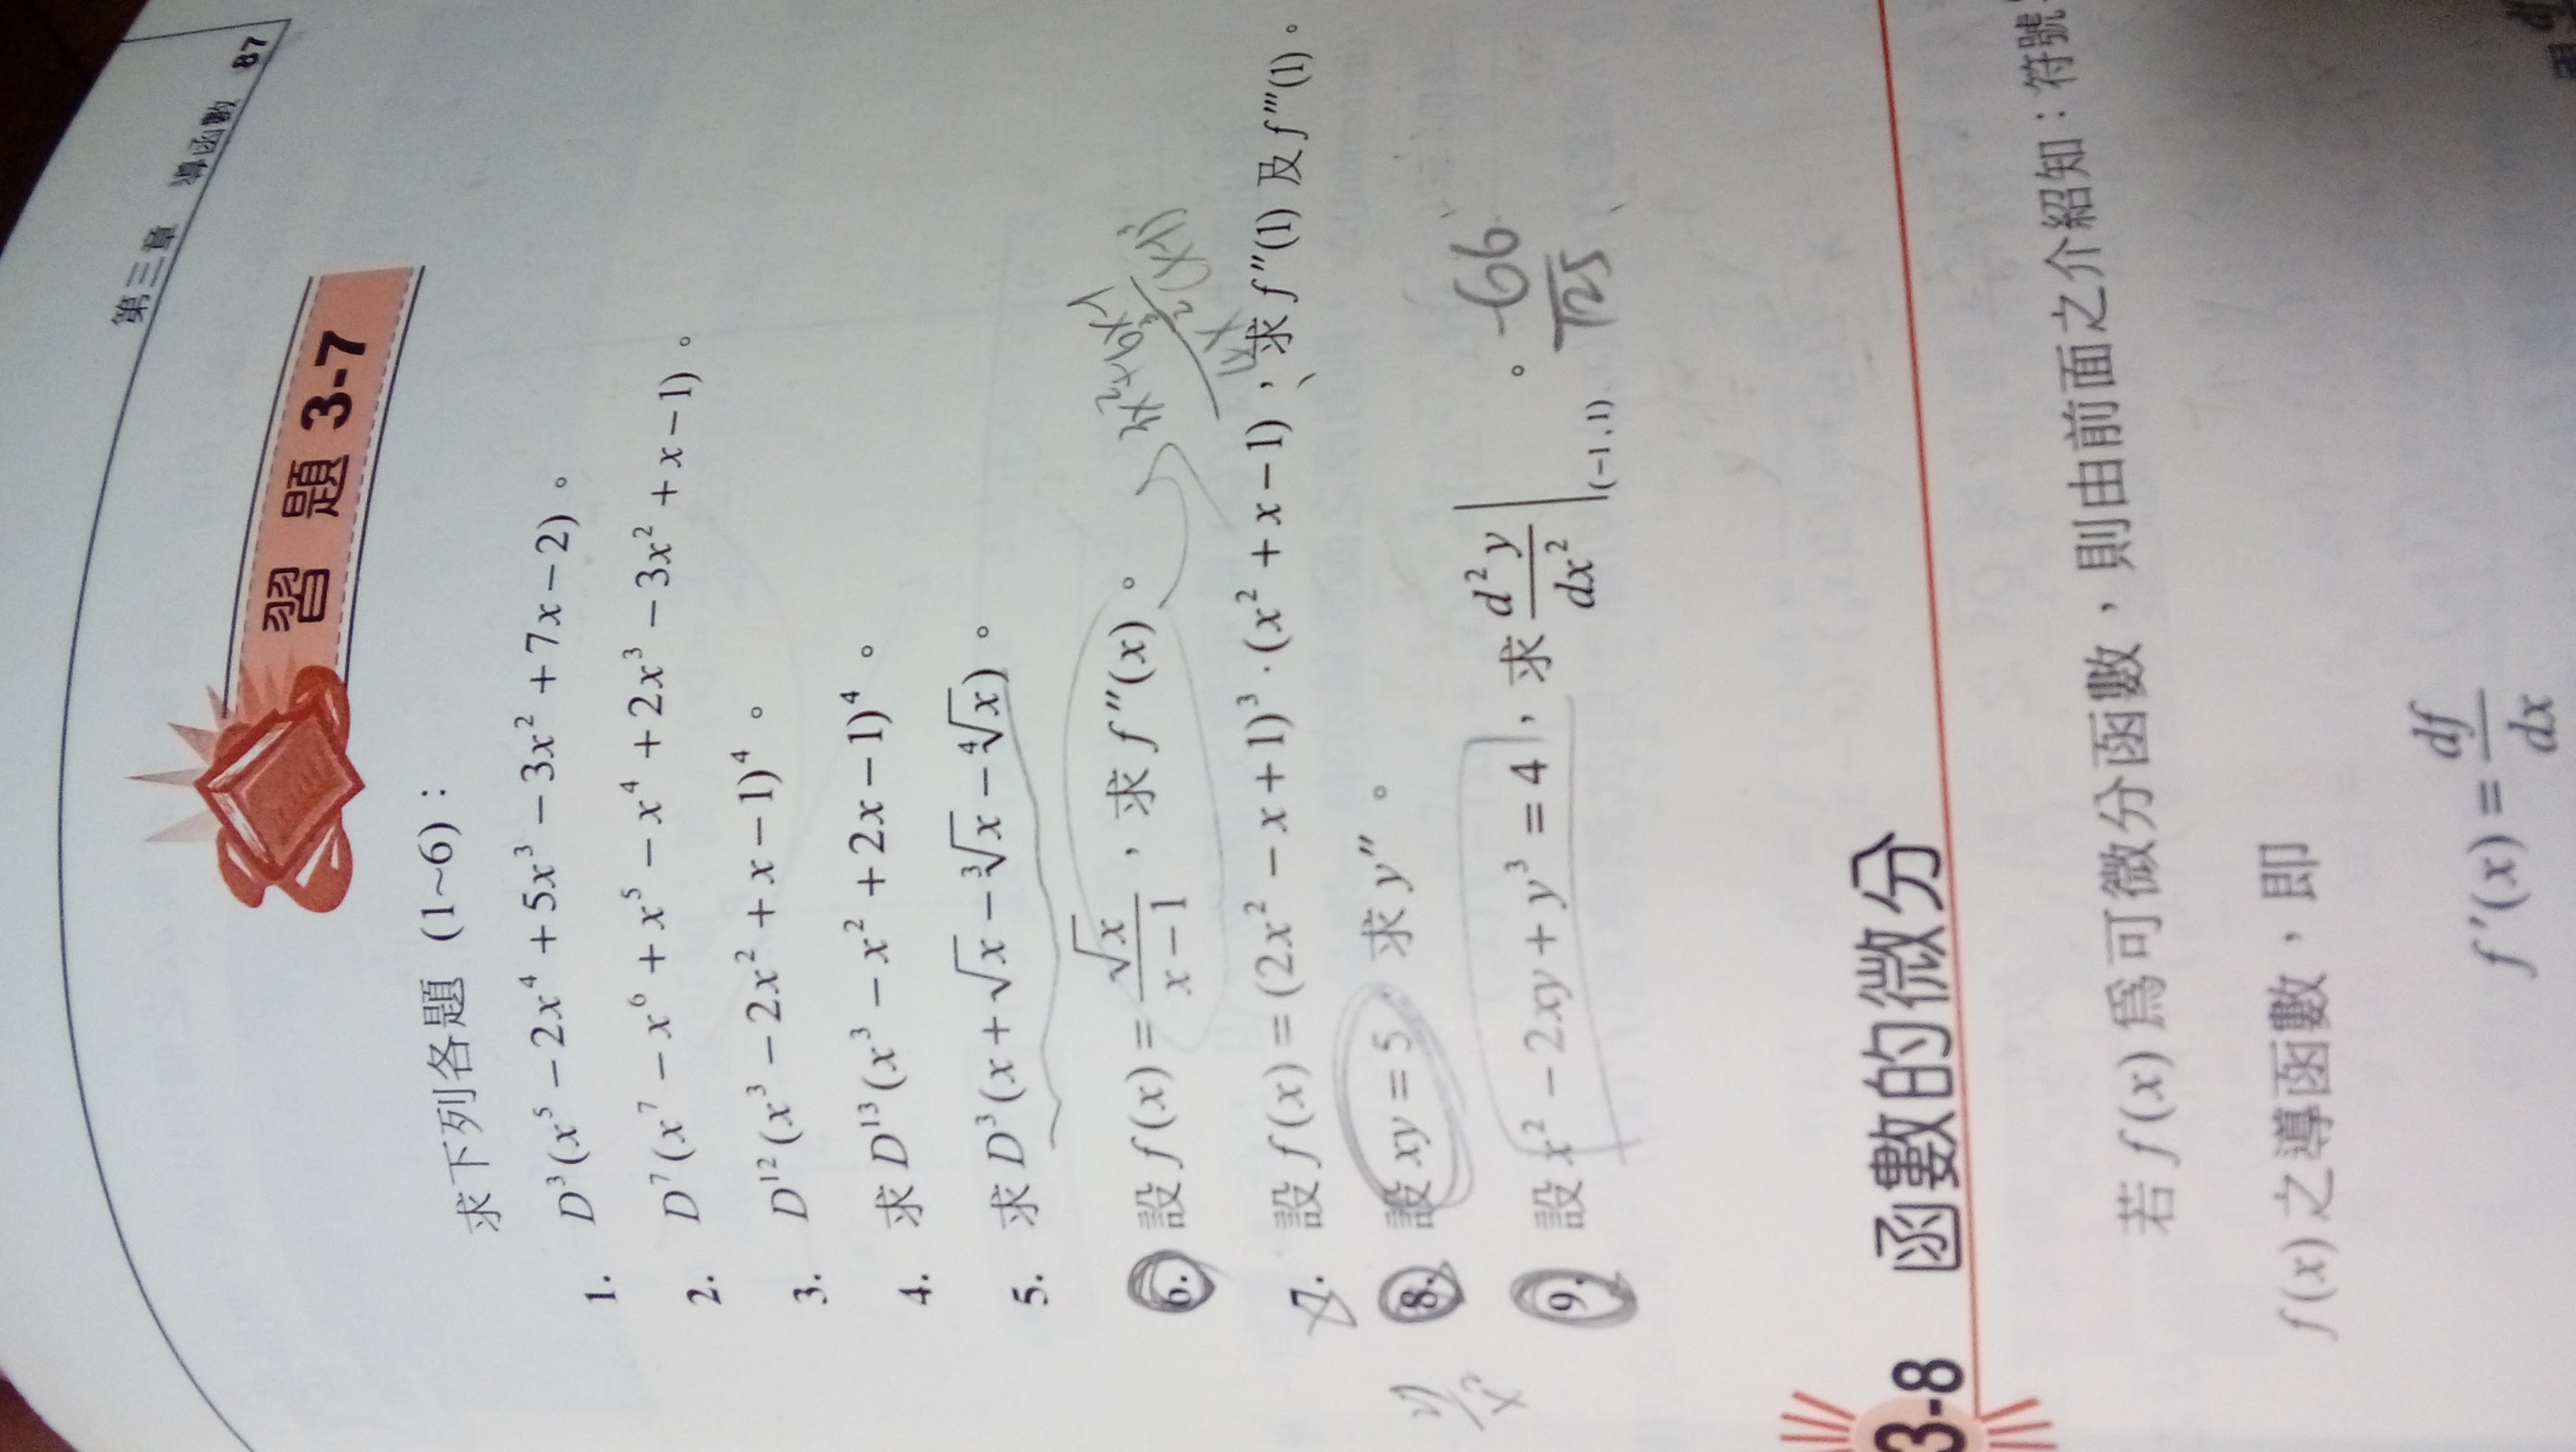 第三章　導函數　87
習 題 3-7
求下列各題 (1~6)：
1. D³(x⁵ − 2x⁴ + 5x³ − 3x² + 7x − 2)。
2. D⁷(x⁷ − x⁶ + x⁵ − x⁴ + 2x³ − 3x² + x − 1)。
3. D¹²(x³ − 2x² + x − 1)⁴。
4. 求 D¹³(x³ − x² + 2x − 1)⁴。
5. 求 D³(x + √x − ∛x − ∜x)。
6. 設 f(x) = √x / (x − 1)，求 f″(x)。
7. 設 f(x) = (2x² − x + 1)³ · (x² + x − 1)，求 f″(1) 及 f‴(1)。
8. 設 xy = 5 求 y″。
9. 設 x² − 2xy + y³ = 4，求 d²y/dx² |(−1,1)。 -66/125
3-8 函數的微分
若 f(x) 為可微分函數，則由前面之介紹知：符號
f(x) 之導函數，即
f′(x) = df/dx